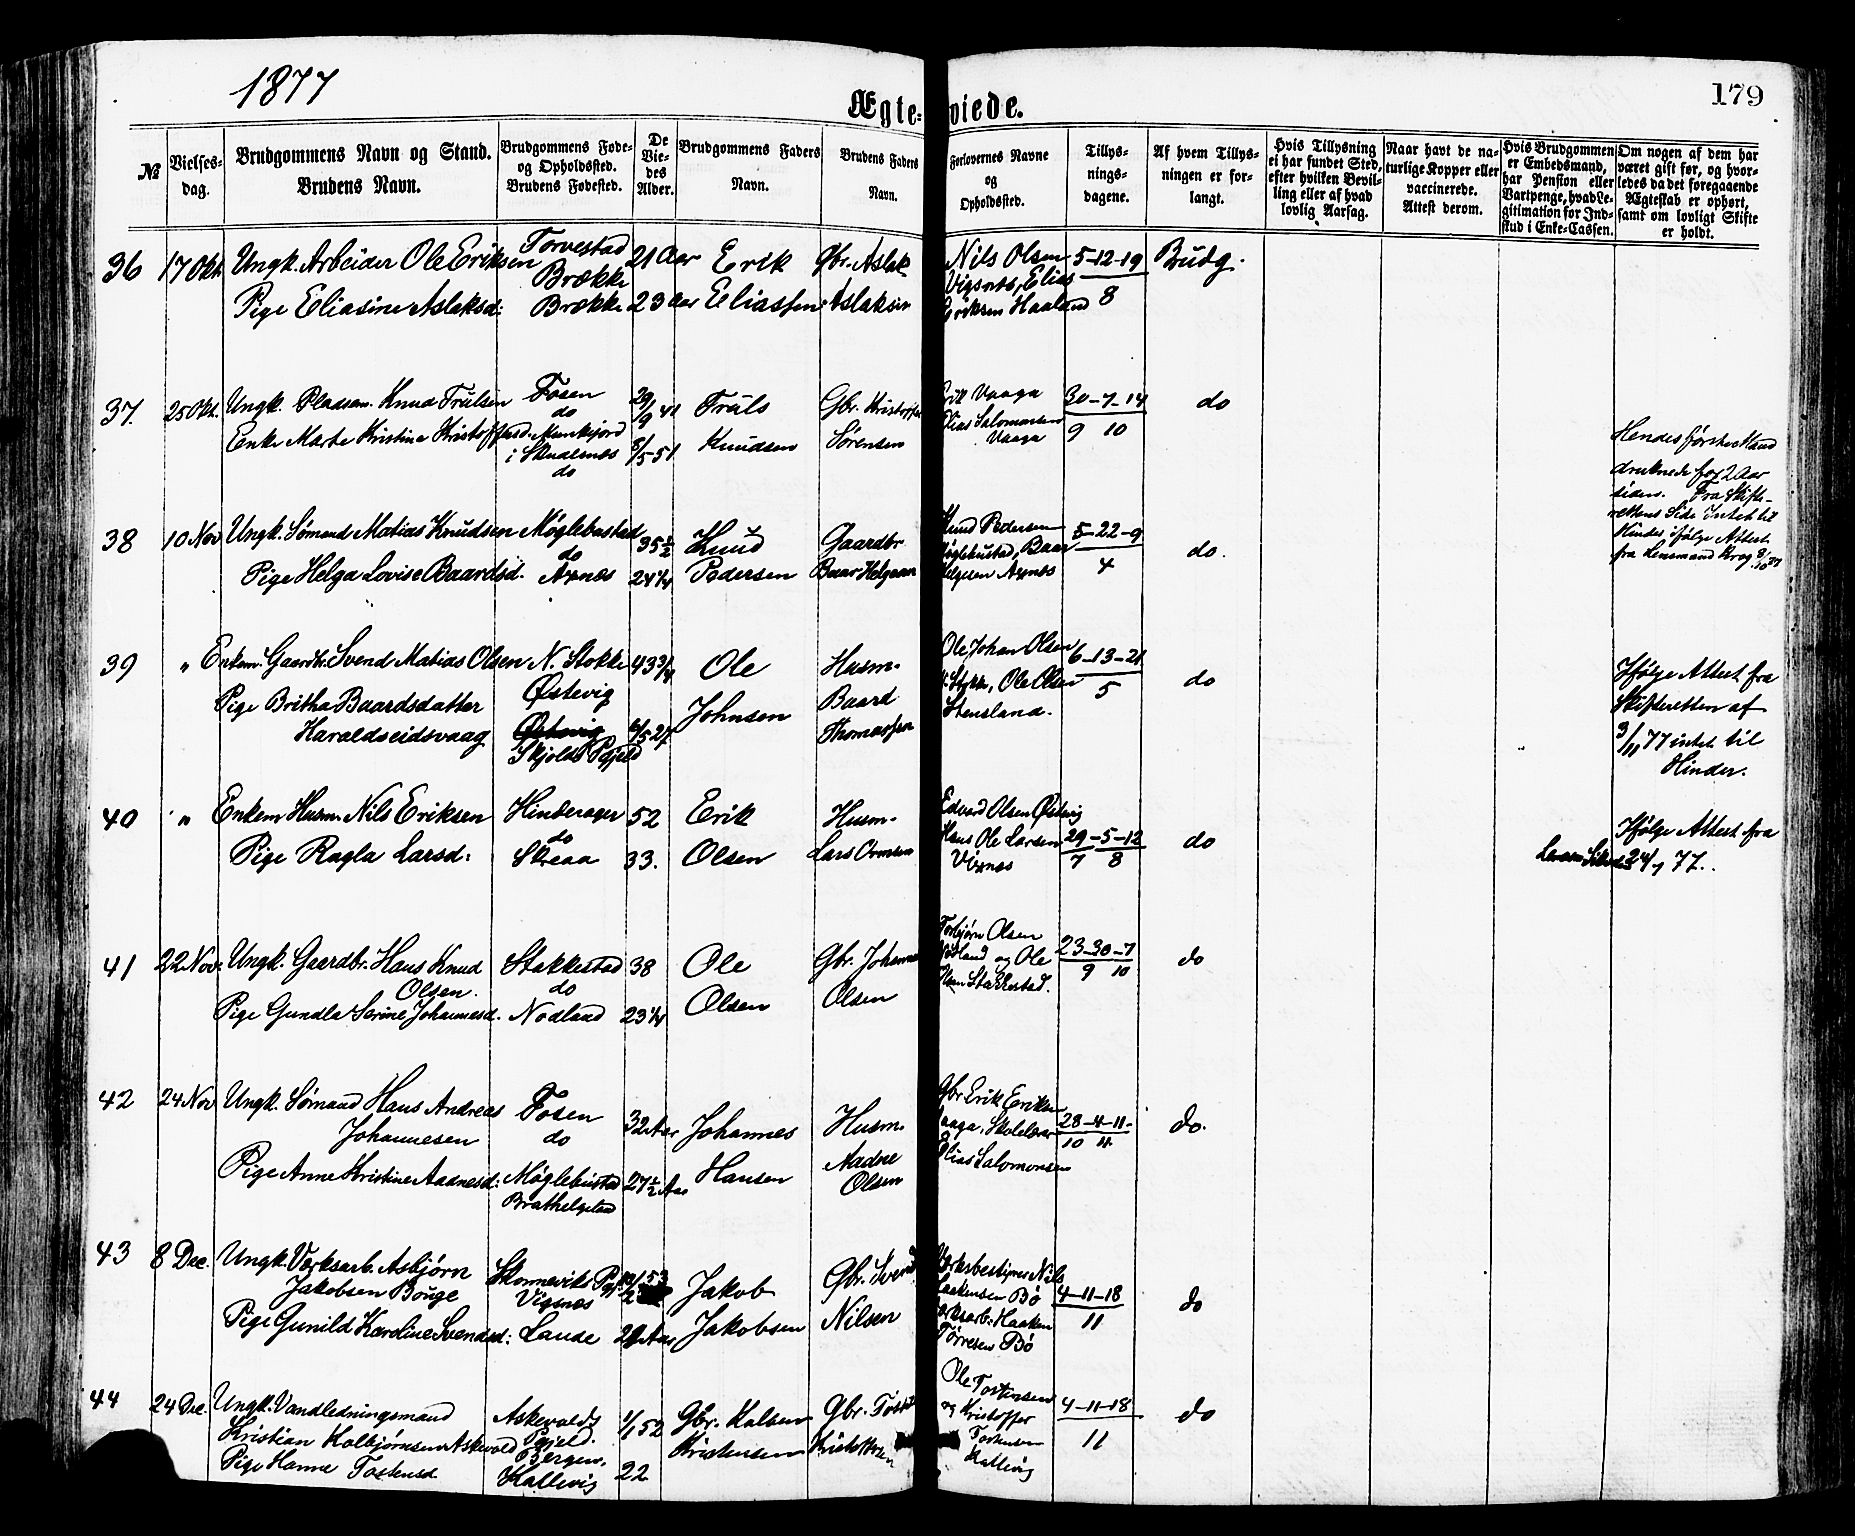 1877
179
Ægteviede.
№
Vielses-
dag.
Brudgommens Navn og Stand.
Brudens Navn.
Brudgommens Føde-
og Opholdssted.
Brudens Fødested.
De
Vie-
des
Alder.
Brudgommens Faders
Navn.
Brudens Faders
Navn.
Forlovernes Navne
og
Opholdssted.
Tillys-
nings-
dagene.
Af hvem Tillys-
ningen er for-
langt.
Hvis Tillysning
ei har fundet Sted,
efter hvilken Bevil-
ling eller af hvad
lovlig Aarsag.
Naar havt de na-
turlige Kopper eller
vaccinerede.
Attest derom.
Hvis Brudgommen
er Embedsmand,
har Pension eller
Vartpenge, hvad Le-
gitimation for Ind-
skud i Enke-Cassen.
Om nogen af dem har
været gift før, og hvor-
ledes da det foregaaende
Ægteskab er ophørt,
samt om lovligt Skifte
er holdt.
36
17 Okt.
Ungk. Arbeider Ole Eriksen
Pige Eliasine Aslaksd:
Torvestad
Brække
Brække
21 Aar
23 Aar
Erik
Eliassen
Gbr. Aslak
Aslaksen
Nils Olsen
Vigsnes, Elias
Eriksen Haaland
5-12-19
8
Brudg.
37.
25 Okt.
Ungk. Pladsm. Knud Trulsen
Enke Marte Kristine Kristoffersd.
Fosen
do
Munkejord
i Skudesnes
do
29/9 41
8/5 51
Truls
Knudsen
Gbr. Kristoffer
Sørensen
Erik Vaaga
Elias Salomonsen
Vaaga
30-7-14
9 10
do
Hendes første Mand
druknede for 2 Aar
siden. Fra Skifte-
rettens Side Intet til
Hinder ifølge Attest
fra Lensmand Krog 8/10 77
38
10 Nov
Ungk. Sømand Matias Knudsen
Pige Helga Lovise Baardsd.
Møglebustad
do
Axnæs
35 1/2
24 1/4
Knud
Pedersen
Gaardbr
Baar Helgesen
Knud Pedersen
Møglebustad, Baar
Helgesen Axnæs
5-22-9
4
do.
39
"
Enkem. Gaardbr. Svend Matias Olsen
Pige Britha Baardsdatter
Haraldseidsvaag
N. Stokke
Østevig
Østevig
Skjolds Pgjeld
43 3/4
6/5 27
Ole
Johnsen
Husm.
Baard
Thomassen
Ole Johan Olsen
N. Stokke, Ole Olsen
Stensland.
6-13-21
5
do
Ifølge Attest fra
Skifteretten af
3/11 77 intet til
Hinder.
40
"
Enkem Husm. Nils Eriksen
Pige Ragla Larsd:
Hinderager
do
Skeaa
52
33.
Erik
Olsen
Husm.
Lars Ormsen
Edvard Olsen Østevig
Hans Ole Larsen
Vixnæs
29-5-12
7 8
do
Ifølge Attest fra
24/7 77.
41
22 Nov.
Ungk. Gaardbr. Hans Knud
Olsen.
Pige Gundla Serine Johannesd.
Stakkestad
do
Nodland
38
23 1/4
Ole
Olsen
Gbr. Johannes
Olsen
Torbjørn Olsen
Nodland og Ole
Olsen Stakkestad.
23-30-7
9 10
do
42
24 Nov
Ungk. Sømand Hans Andreas
Johannesen
Pige Anne Kristine Aadnesd:
Fosen
do
Møglebustad
Brathelgeland
32 Aar
27 1/2 Aar
Johannes
Hansen
Husm.
Aadne
Olsen
Gbr. Erik Eriksen
Vaaga, Skolelærer
Elias Salomonsen
28-4-11.
10 11
do.
43
8 Dec.
Ungk. Værksarb. Asbjørn
Jakobsen Bouge
Pige Gunild Karoline Svendsd:
Skonneviks Pgj.
Vigsnæs
Lande
53
22 Aar
Jakob
Jakobsen
Gbr. Svend
Nilsen
Værksbestyrer Nils
Haakensen Bø
Værksarb. Haaken
Tørresen Bø
4-11-18
11
do
44
24 Dec.
Ungk. Vandledningsmand
Kristian Kolbjørnsen Askevold
Pige Hanne Tostensd
Askevolds
Pgjeld.
Bergen.
Hallevig
1/1 52
22
Gbr. Kolben
Kristensen
Gbr. Tosten
Kristoffersen
Ole Tostensen
og Kristoffer
Tostensen
Hallevig
4-11-18
11
do